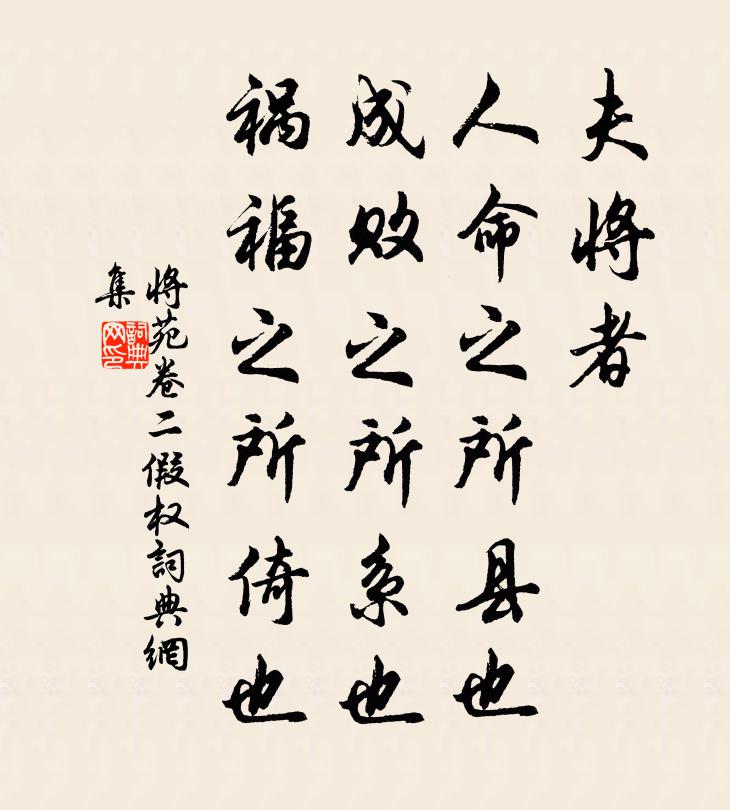 夫将者
人命之所县也
成败之所系也
祸福之所倚也
将苑卷二假权詞典網
集
詞典
网印